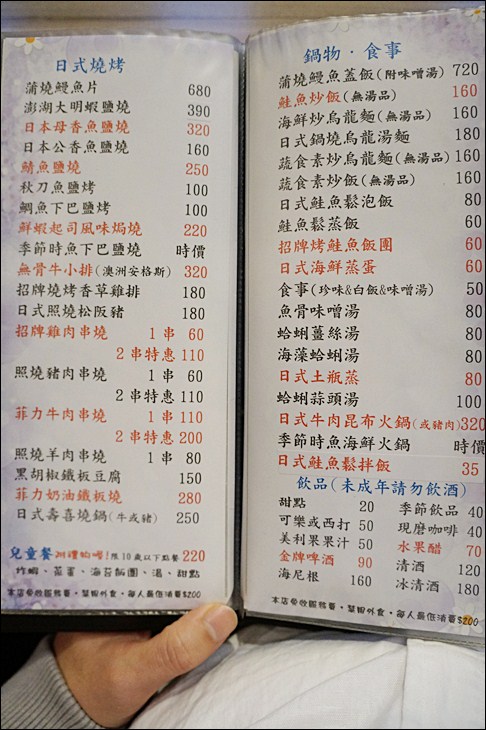 日式燒烤
蒲燒鰻魚片 680
澎湖大明蝦鹽燒 390
日本母香魚鹽燒 320
日本公香魚鹽燒 160
鯖魚鹽燒 250
秋刀魚鹽烤 100
鯛魚下巴鹽烤 100
鮮蝦起司風味焗燒 220
季節時魚下巴鹽燒 時價
無骨牛小排(澳洲安格斯) 320
招牌燒烤香草雞排 180
日式照燒松阪豬 180
招牌雞肉串燒 1串 60
2串特惠 110
照燒豬肉串燒 1串 60
2串特惠 110
菲力牛肉串燒 1串 110
2串特惠 200
照燒羊肉串燒 1串 80
黑胡椒鐵板豆腐 150
菲力奶油鐵板燒 280
日式壽喜燒鍋(牛或豬) 250
兒童餐 附禮物唷!限10歲以下點餐 220
炸蝦、茶蛋、海苔飯團、湯、甜點
本店旁收服務費‧禁帶外食‧每人最低消費$200
鍋物‧食事
蒲燒鰻魚蓋飯(附味噌湯) 720
鮭魚炒飯(無湯品) 160
海鮮炒烏龍麵(無湯品) 160
日式鍋燒烏龍湯麵 180
蔬食素炒烏龍麵(無湯品) 160
蔬食素炒飯(無湯品) 160
日式鮭魚鬆泡飯 80
鮭魚鬆蒸飯 60
招牌烤鮭魚飯團 60
日式海鮮蒸蛋 60
食事(珍味&白飯&味噌湯) 50
魚骨味噌湯 80
蛤蜊薑絲湯 80
海藻蛤蜊湯 80
日式土瓶蒸 80
蛤蜊蒜頭湯 100
日式牛肉昆布火鍋(或豬肉) 320
季節時魚海鮮火鍋 時價
日式鮭魚鬆拌飯 35
飲品(未成年請勿飲酒)
甜點 20 季節飲品 40
可樂或西打 50 現磨咖啡 40
美利果果汁 50 水果醋 70
金牌啤酒 90 清酒 120
海尼根 160 冰清酒 180
本店旁收服務費‧禁帶外食‧每人最低消費$200